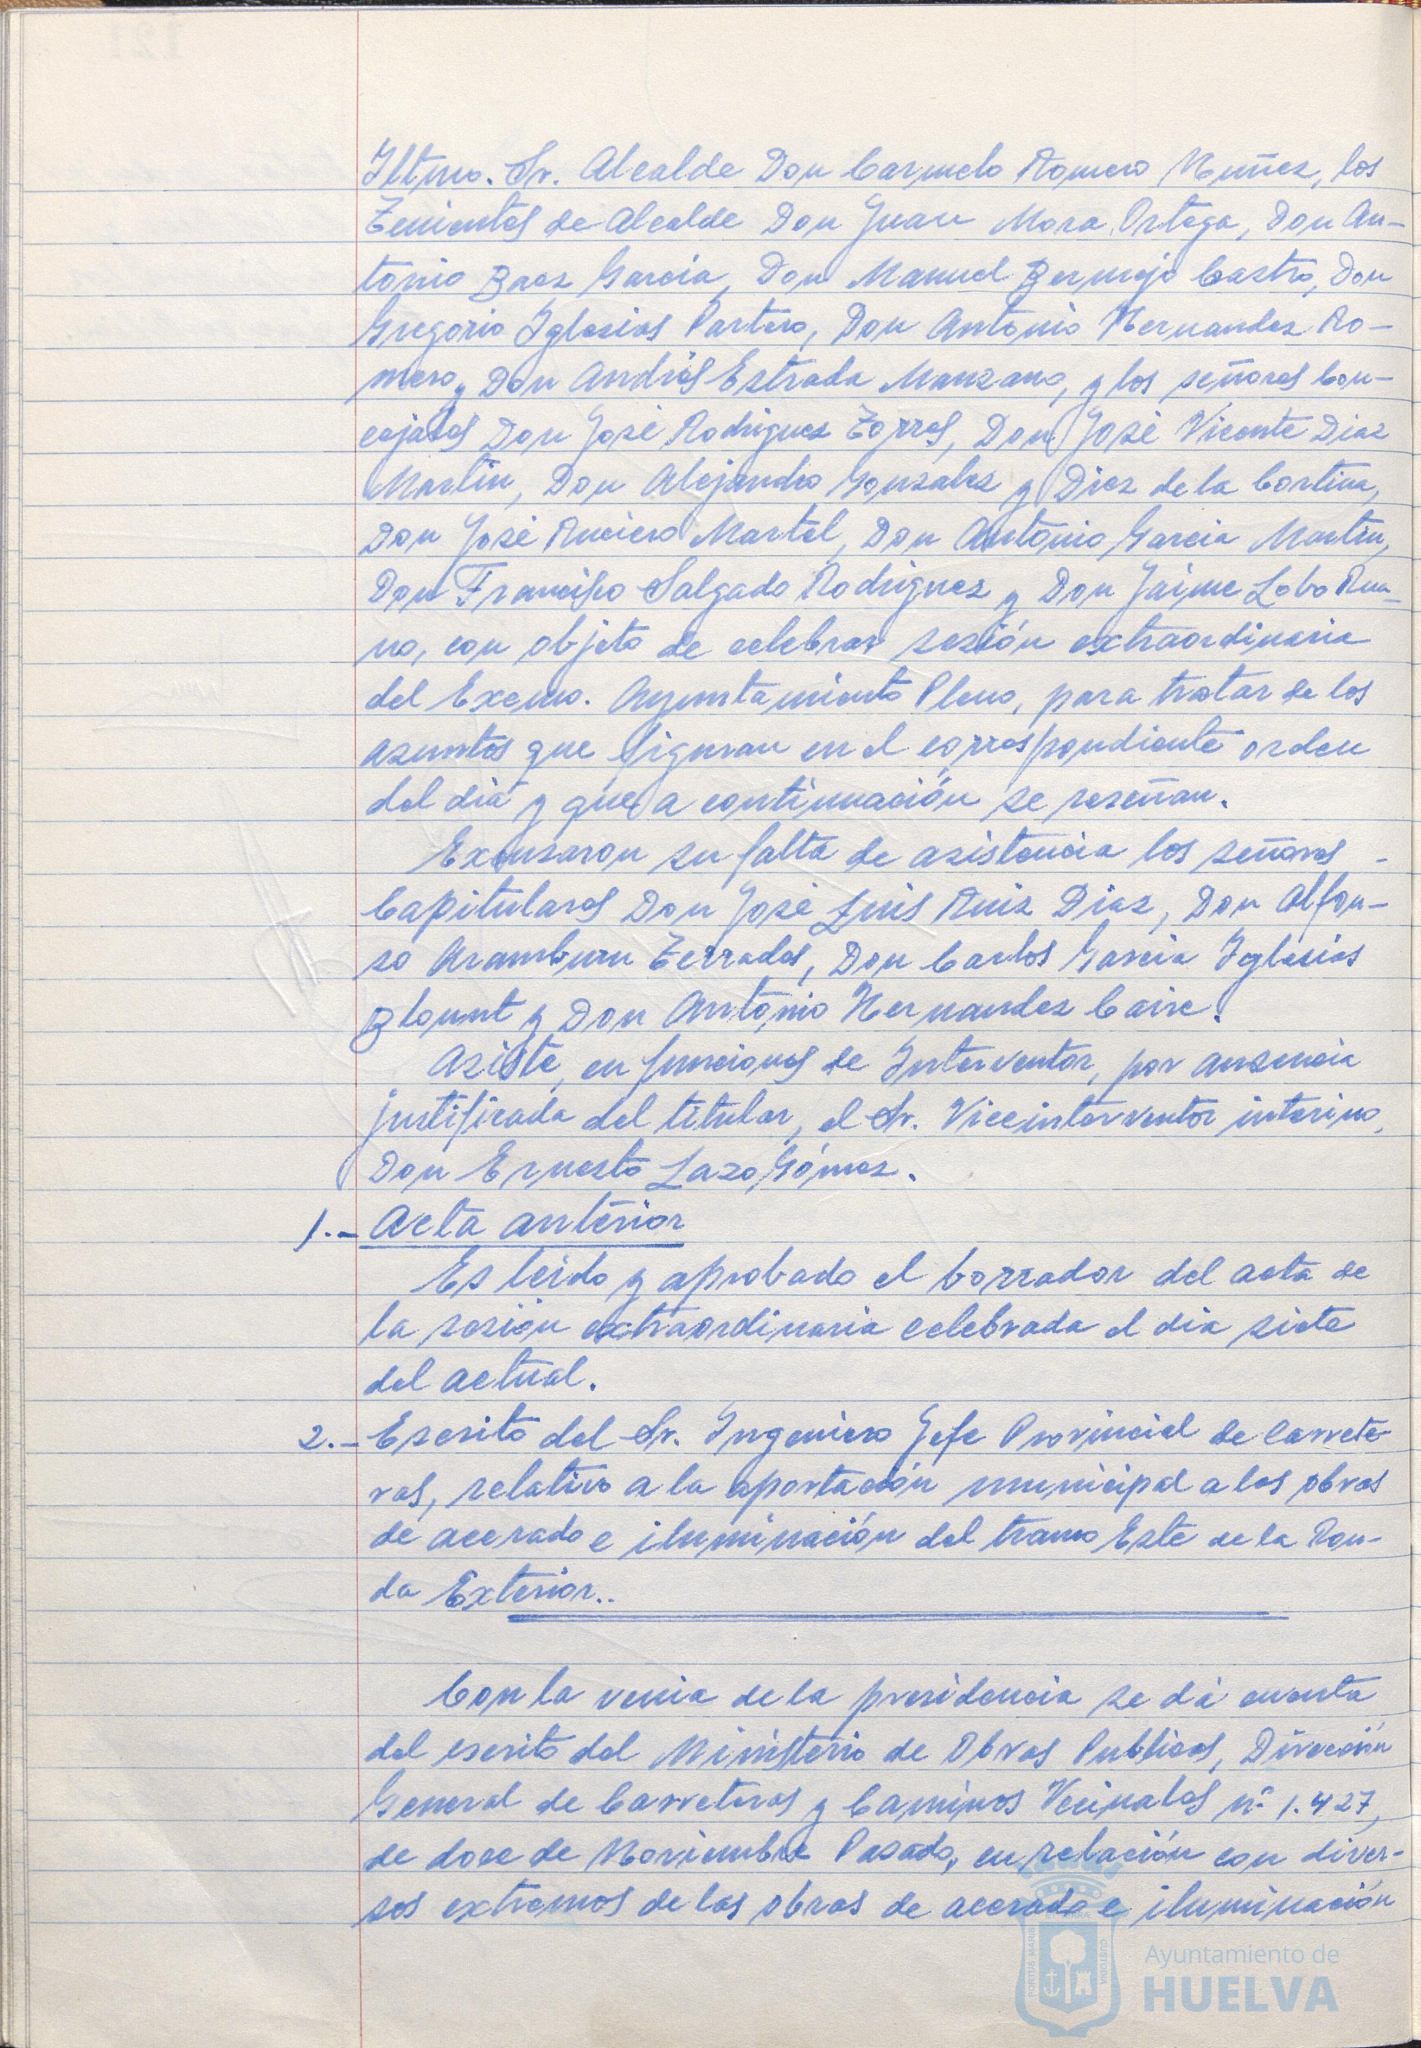 Iltmo. Sr. Alcalde Don Carmelo Romero Núñez, los
Tenientes de Alcalde Don Juan Mora Ortega, Don An-
tonio Baez Garcia, Don Manuel Bermejo Castro, Don
Gregorio Iglesias Partero, Don Antonio Hernandez Ro-
mero, y Don Andrés Estrada Manzano, y los señores Con-
cejales Don José Rodriguez Torres, Don José Vicente Diaz
Martin, Don Alejandro Gonzalez y Diez de la Cortina,
Don José Ruciero Martel, Don Antonio Garcia Martin,
Don Francisco Salgado Rodriguez y Don Jaime Lobo Rua-
no, con objeto de celebrar sesión extraordinaria
del Excmo. Ayuntamiento Pleno, para tratar de los
asuntos que figuran en el correspondiente orden
del dia y que a continuación se reseñan.
Excusaron su falta de asistencia los señores -
Capitulares Don José Luis Ruiz Diaz, Don Alfon-
so Aramburu Terrades, Don Carlos Garcia Iglesias
Blount y Don Antonio Hernandez Caire.
Asiste, en funciones de Interventor, por ausencia
justificada del titular, el Sr. Viceinterventor interino,
Don Ernesto Lazo Gómez.
1.- Acta anterior
Es leido y aprobado el borrador del acta de
la sesión extraordinaria celebrada el dia siete
del actual.
2.- Escrito del Sr. Ingeniero Jefe Provincial de Carrete-
ras, relativo a la aportación municipal a las obras
de acerado e iluminación del tramo Este de la Ron-
da Exterior..
Con la venia de la presidencia se dá cuenta
del escrito del Ministerio de Obras Publicas, Dirección
General de Carreteras y Caminos Vecinales nº 1.427,
de doce de Noviembre Pasado, en relación con diver-
sos extremos de las obras de acerado e iluminación
Ayuntamiento de
HUELVA